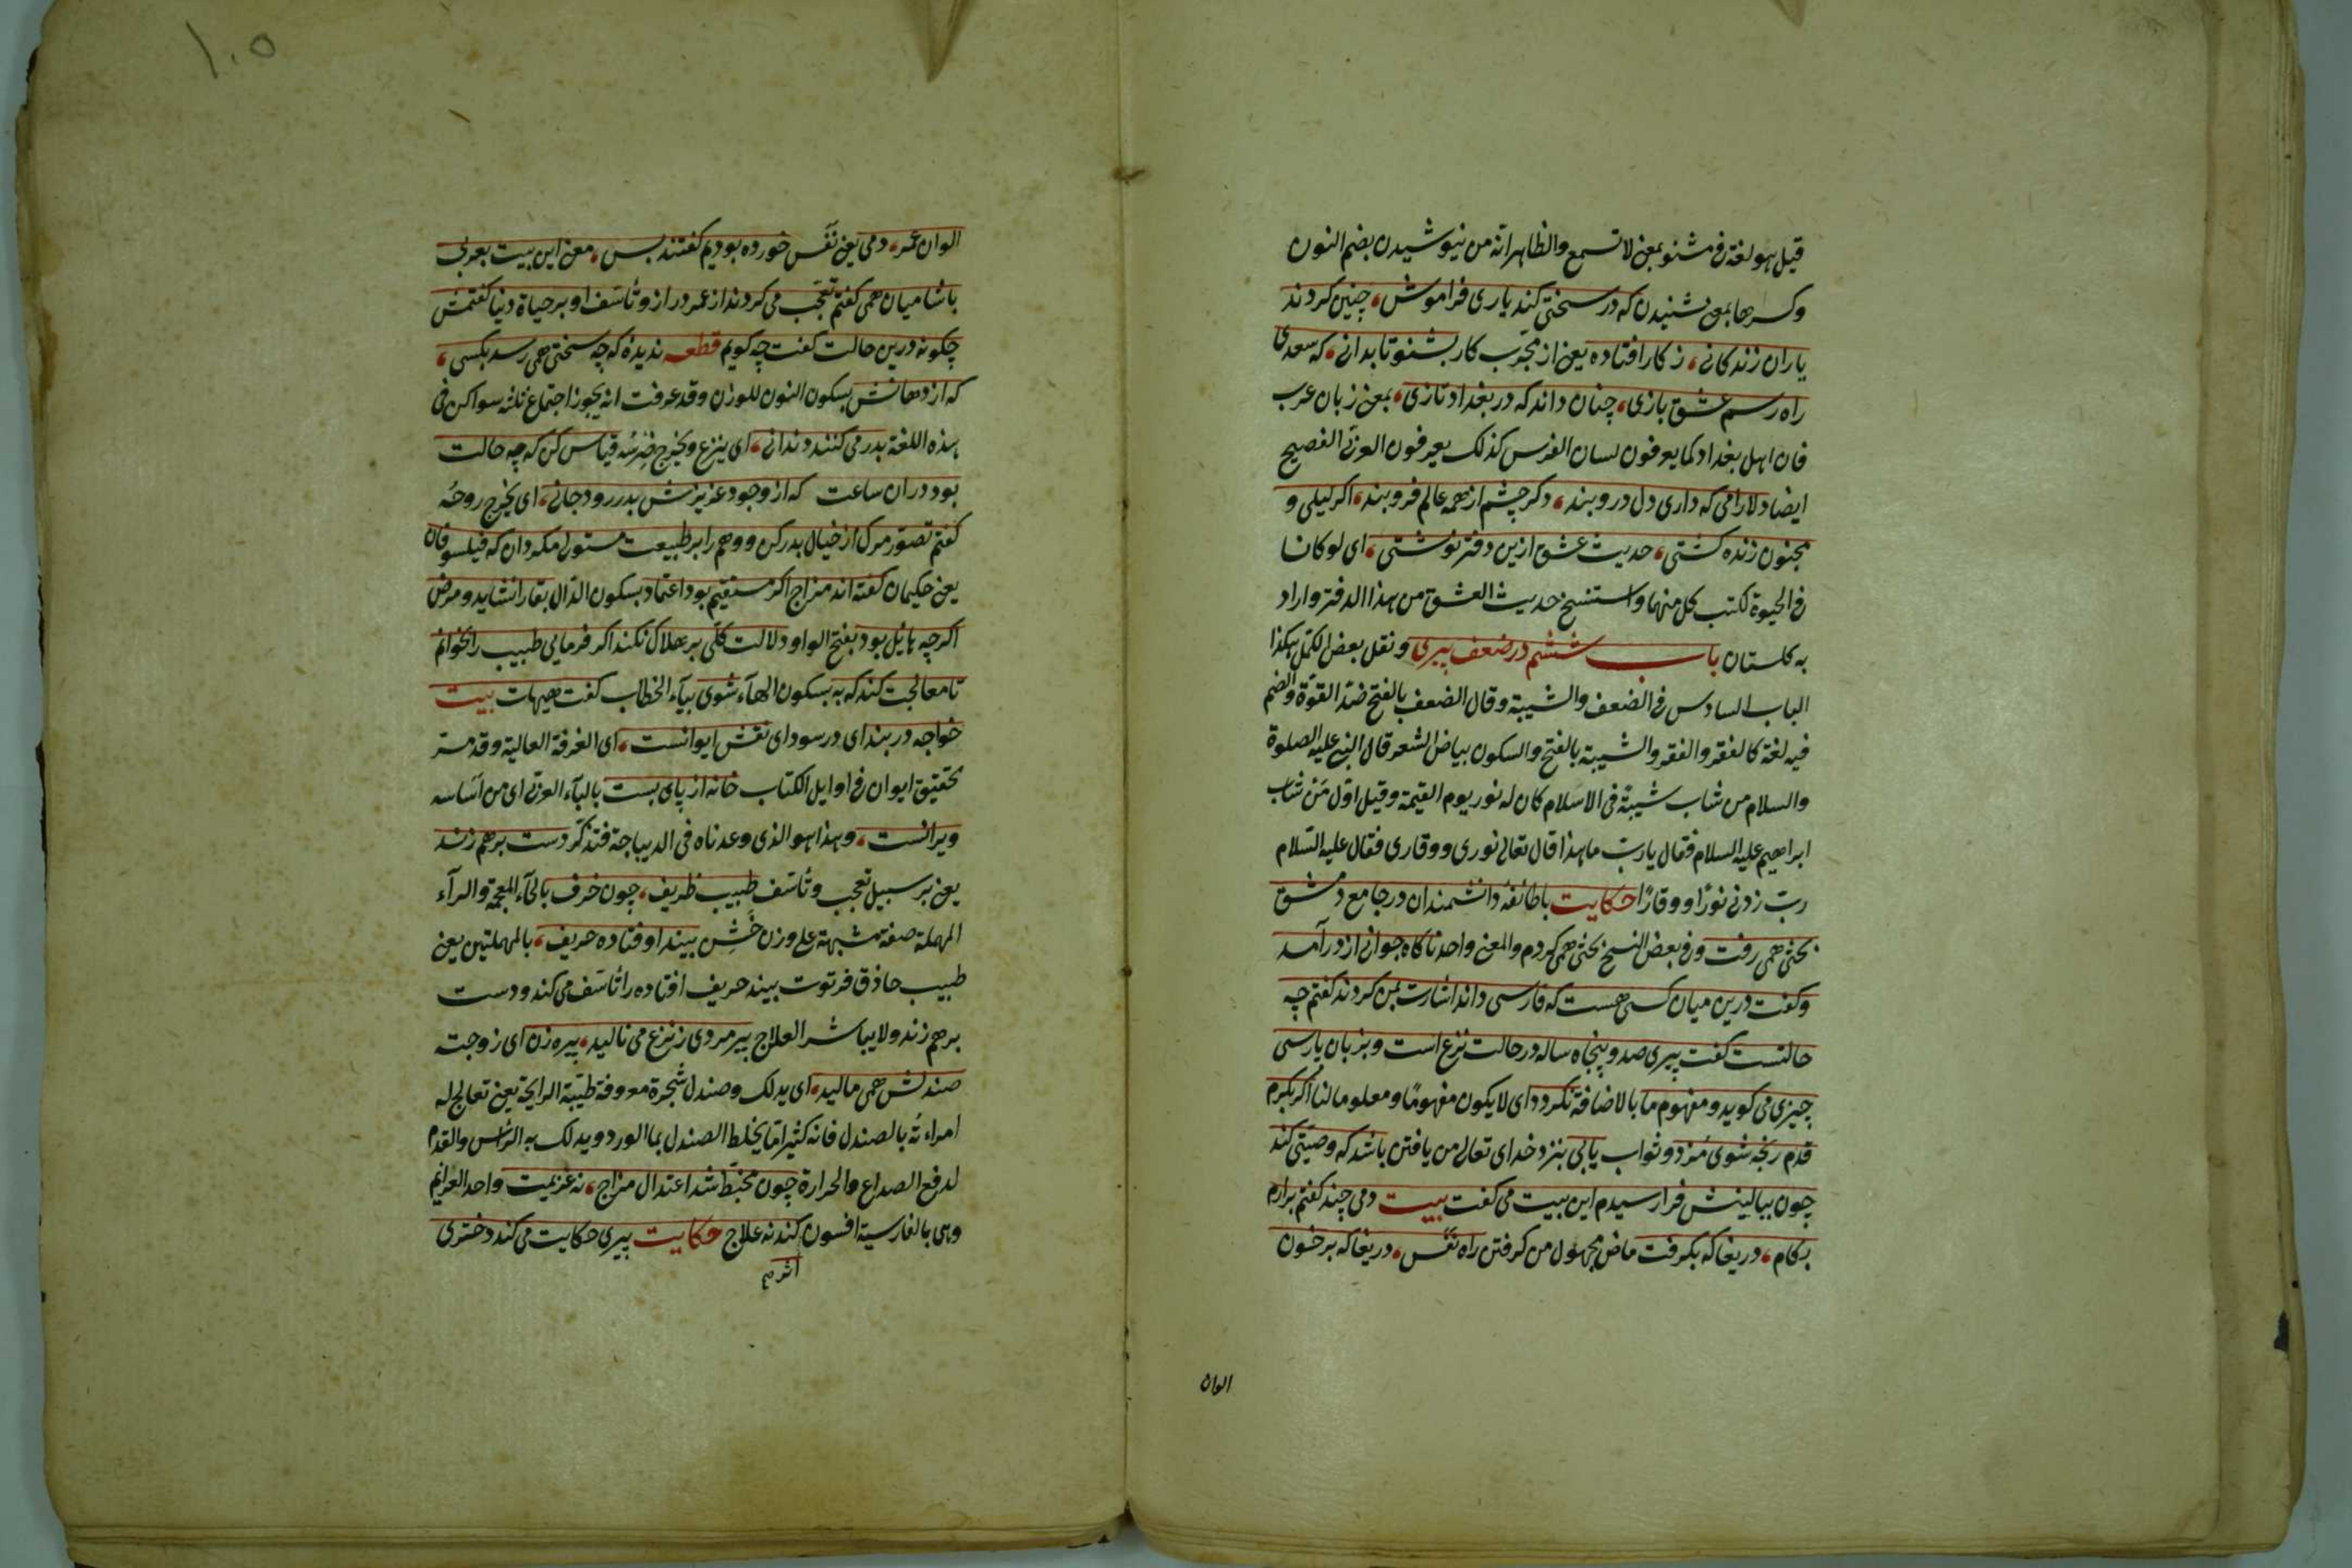 قيل هو لغة فى مشنو بمعنى لا تسمع والظاهر انه من نيوشيدن بضم النون
وكسرها بمعنى شنيدن كه در سختى كند يارى فراموش، چنين كردند
ياران زندكانى، ز كار افتاده يعنى از مجرب كار بشنو تا بدانى، كه سعدى
راه رسم عشق بازى، چنان داند كه در بغداد تازى، بمعنى زبان عرب
فان اهل بغداد كما يعرفون لسان الفرس كذلك يعرفون العربى الفصيح
ايضا دلارامى كه دارى دل درو بند، دكر چشم از همه عالم فرو بند، اكر ليلى و
مجنون زنده كشتى، حديث عشق ازين دفتر نوشتى، اى لو كانا
فى الحيوة لكتب كل منهما واستنسخ حديث العشق من هذا الدفتر واراد
به كلستان باب ششم در ضعف پيرى ونقل بعض الكمل هكذا
الباب السادس فى الضعف والشيبة وقال الضعف بالفتح ضد القوة والضم
فيه لغة كالفقر والفقر والشيبة بالفتح والسكون بياض الشعر قال النبى عليه الصلوة
والسلام من شاب شيبة فى الاسلام كان له نور يوم القيمة وقيل اول من شاب
ابراهيم عليه السلام فقال يا رب ما هذا قال تعالى نورى ووقارى فقال عليه السلام
رب زدنى نورا ووقارا حكايت با طائفه دانشمندان در جامع دمشق
بحثى همى رفت وفى بعض النسخ بحثى همى كردم والمعنى واحد ناكاه جوانى از در آمد
وكفت درين ميان كسى هست كه فارسى داند اشارت بمن كردند كفتم چه
حالتست كفت پيرى صد و پنجاه ساله در حالت نزع است وبزبان پارسى
چيزى مى كويد ومفهوم ما بالاضافة نكردد اى لا يكون مفهوما ومعلوما لنا اكر بكرم
قدم رنجه شوى مزد وثواب يابى بنزد خداى تعالى من يافتن باشد كه وصيتى كند
چون ببالينش فرا رسيدم اين بيت مى كفت بيت دمى چند كفتم برارم
بكام، دريغا كه بكرفت ماض مجهول من كرفتن راه نفس، دريغا كه بر خون
الوان
١٠٥
الوان عمر، دمى يعنى نفس خورده بوديم كفتند بس، معنى اين بيت بعربى
با شاميان همى كفتم تعجب مى كردند از عمر دراز وتأسف او بر حياة دنيا كفتمش
چكونه درين حالت كفت چه كويم قطعه نديده كه چه سختى همى رسد بكسى،
كه از دهانش بسكون النون للوزن وقد عرفت انه يجوز اجتماع ثلثه سواكن فى
هذه اللغة بدر مى كنند دندانى، اى ينزع ويخرج ضرسه قياس كن كه چه حالت
بود دران ساعت كه از وجود عزيزش بدر رود جانى، اى يخرج روحه
كفتم تصور مرك از خيال بدر كن ووهم را بر طبيعت مستولى مكردان كه فيلسوفان
يعنى حكيمان كفته اند مزاج اكر مستقيم بود اعتماد بسكون الدال بقا را نشايد ومرض
اكرچه هايل بود بفتح الواو دلالت كلى بر هلاك نكند اكر فرمايى طبيب را بخوانم
تا معالجت كند كه به بسكون الهآء شوى بيآء الخطاب كفت هيهات بيت
خواجه در بند اى در سوداى نقش ايوانست، اى الغرفة العالية وقد مر
تحقيق ايوان فى اوايل الكتاب خانه از پاى بست بالبآء العربى اى من اساسه
ويرانست، وهذا هو الذى وعدناه فى الديباجة فتذكر دست برهم زند
يعنى بر سبيل تعجب وتأسف طبيب ظريف، چون خرف بالخآء المعجمة والرآء
المهملة صفة مشبهة على وزن خشن بيند اوفتاده حريف، بالمهملتين يعنى
طبيب حاذق فرتوت بيند حريف افتاده را تأسف مى كند ودست
برهم زند ولا يباشر العلاج پيرمردى ز نزع مى ناليد، پيره زن اى زوجت
صندلش همى ماليد، اى يدلك وصندل شجرة معروفة طيبة الرايحة يعنى تعالج له
امراءته بالصندل فانه كثيرا ما يخلط الصندل بماالورد ويدلك به الرأس والقدم
لدفع الصداع والحرارة چون مخبط شد اعتدال مزاج، نه عزيمت واحد العزايم
وهى بالفارسية افسون كند نه علاج حكايت پيرى حكايت مى كند دخترى